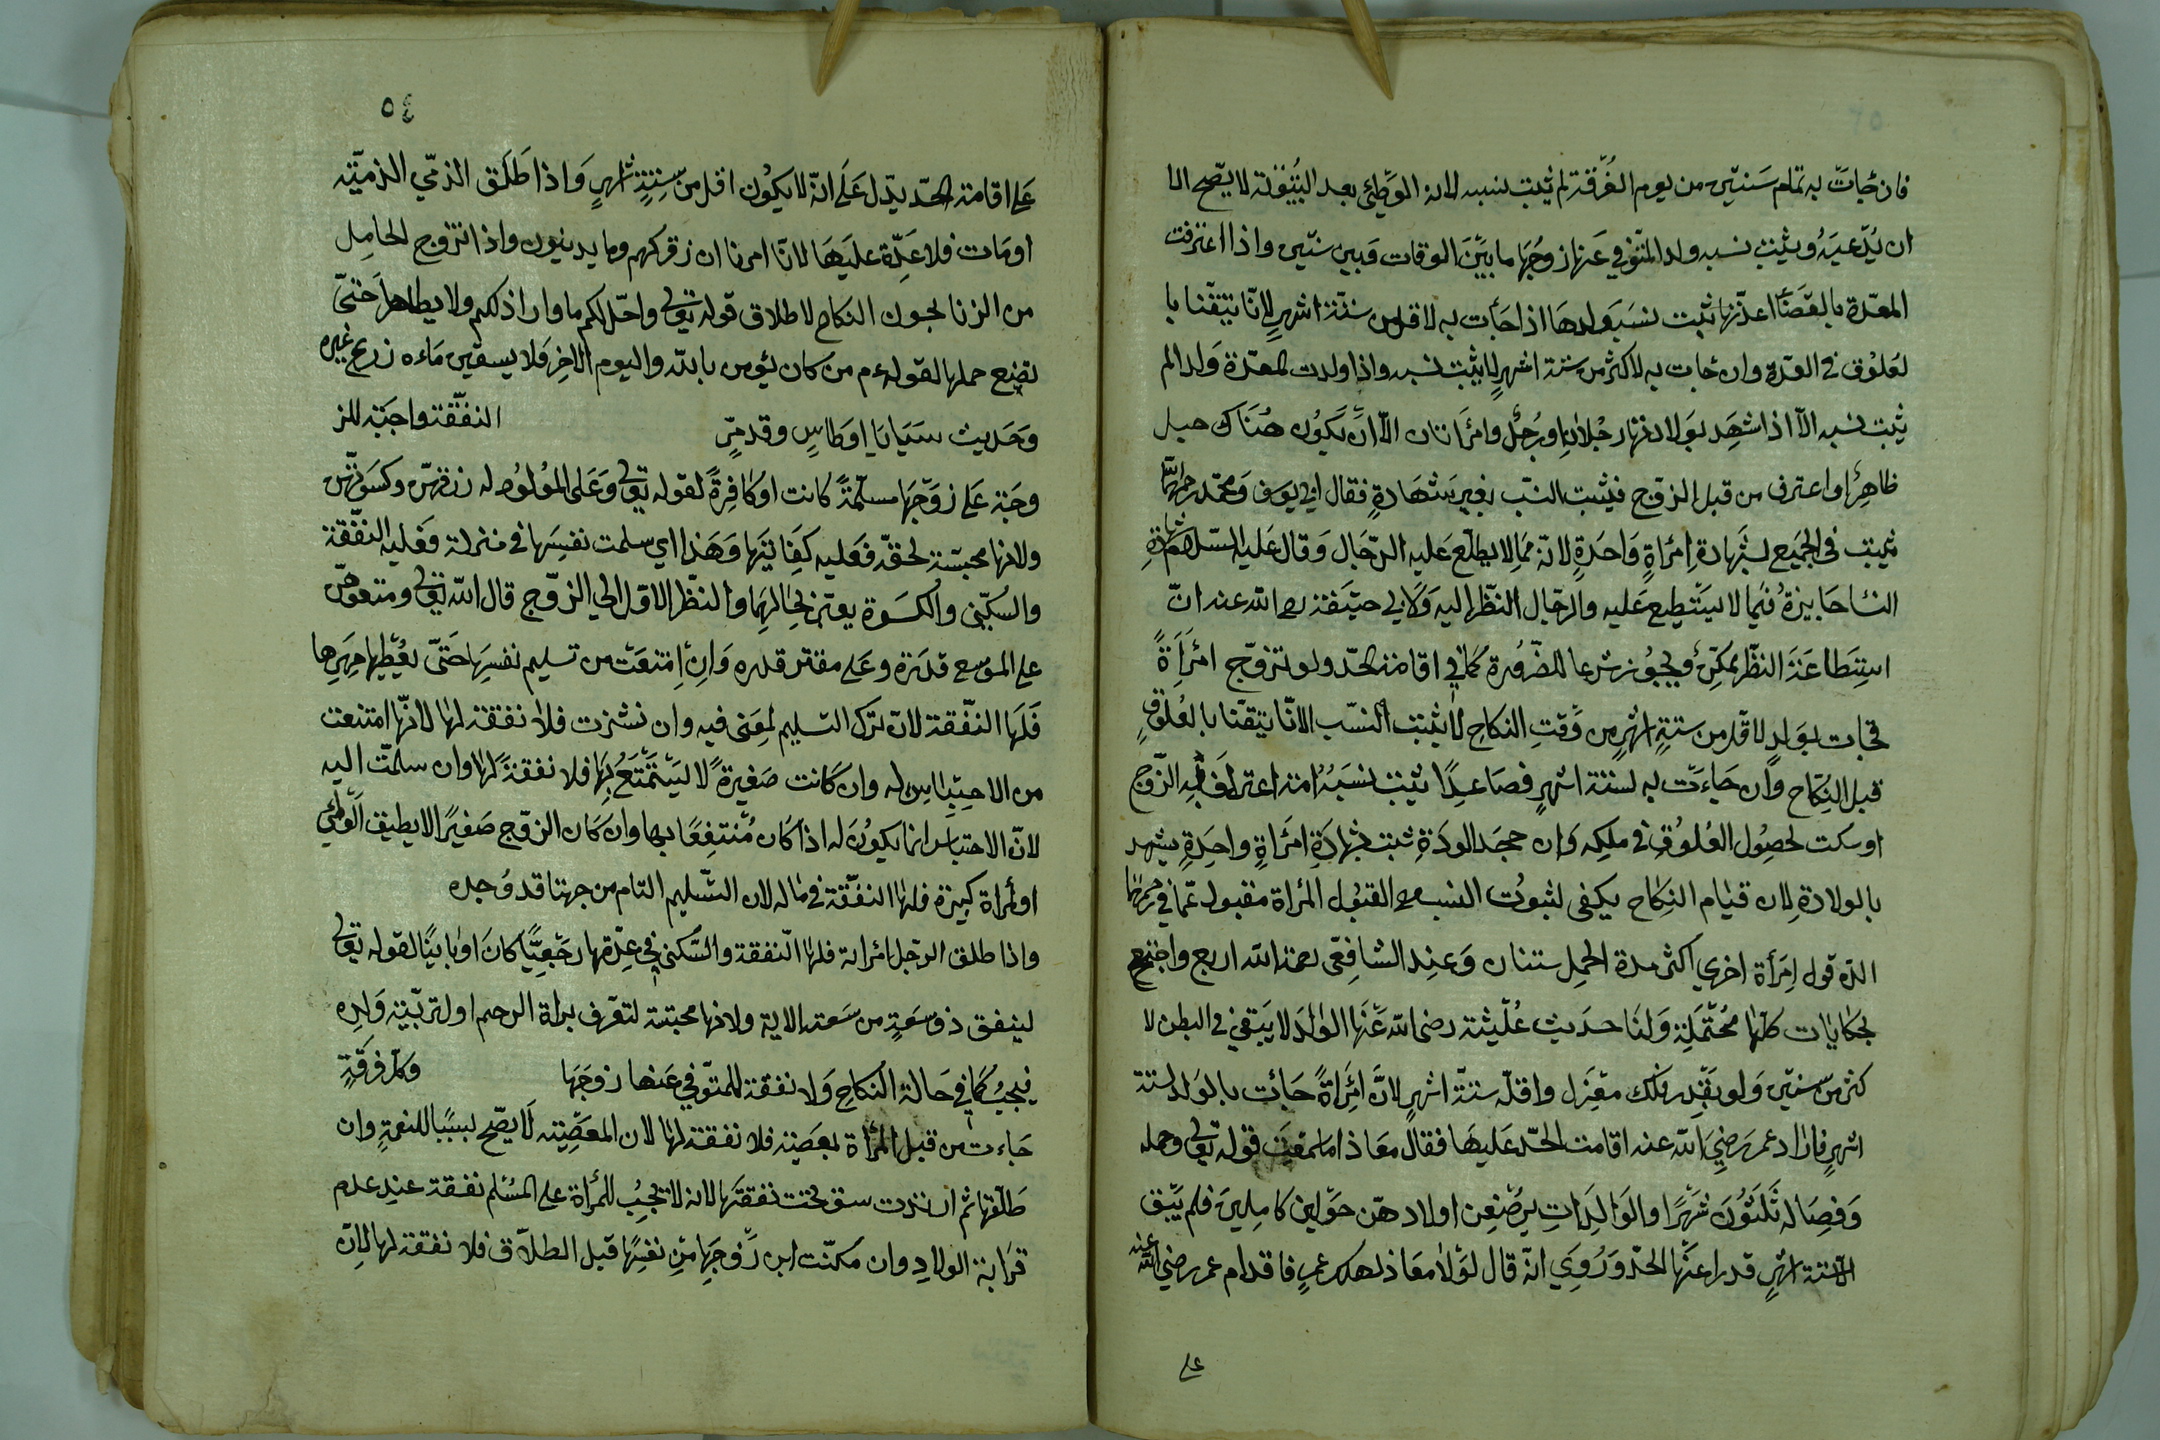 فان جاءت به تمام سنتين من يوم الفرقة لم يثبت نسبه لان الوطئ بعد البينونة لا يصح الا
ان يدعيه ويثبت نسب ولد المتوفي عنها زوجها ما بين الوفات وبين سنتين واذا اعترفت
المعتدة بانقضاء عدتها ثبت نسب ولدها اذا جأت به لاقل من ستة اشهر لانا تيقنا با
لعلوق في العدة وان جات به لاكثر من ستة اشهر لا يثبت نسبه واذا ولدت المعتدة ولدا لم
يثبت نسبه الا اذا شهد بولادتها رجلان او رجل وامرأتان الا ان يكون هناك حبل
ظاهر او اعتراف من قبل الزوج فيثبت النسب بغير شهادة فقال ابي يوسف ومحمد رحمهما
يثبت في الجميع بشهادة امرأة واحدة لانه مما لا يطلع عليه الرجال وقال عليه السلام شهادة
النساء جايزة فيما لا يستطيع عليه والرجال النظر اليه ولابي حنيفة رضي الله عنه ان
استطاعة النظر يمكن ويجوز شرعا للضرورة كما في اقامة الحد ولو تزوج امرأة
فجات بولد لاقل من ستة اشهر من وقت النكاح لا يثبت النسب لانا تيقنا بالعلوق
قبل النكاح وان جاءت به لستة اشهر فصاعدا يثبت نسبه منه اعترف به الزوج
او سكت لحصول العلوق في ملكه وان جحد الودة ثبت بشهادة امرأة واحدة يشهد
بالولادة لان قيام النكاح يكفى لثبوت النسب القبول المرأة مقبولة
قول امرأة اخرى اكثر مدة الحمل سنتان وعند الشافعي رحمة الله اربع واحتج
بحكايات كلها محتملة ولنا حديث عايشة رضي الله عنها الولد لا يبقي في البطن لا
كثر من سنتين ولو بقدر فلك مغزل واقله ستة اشهر لان امرأة جائت بالولد لستة
اشهر فاراد عمر رضي الله عنه اقامت الحد عليها فقال معاذ اما سمعت قوله تعالى وحمله
وفصاله ثلثون شهرا والوالدات يرضعن اولادهن حولين كاملين فلم يبق
الا ستة اشهر قدرا عنها الحد وروي انه قال لولا معاذ لهلك عمر فاقدام عمر رضي الله عنه
على
٥٤
على اقامة الحد يدل على انه لا يكون اقل من ستة اشهر واذا طلق الذمي الذمية
او مات فلا عدة عليها لانا امرنا ان نتركهم وما يدينون واذا تزوج الحامل
من الزنا يجوز النكاح لاطلاق قوله تعالى واحل لكم ما وراء ذلكم ولا يطاها حتى
تضع حملها لقوله عم من كان يؤمن بالله واليوم الاخر فلا يسقين ماءه زرع غيره
وحديث سبايا اوطاس وقد مر النفقة واجبة للز
وجة على زوجها مسلمة كانت او كافرة لقوله تعالى وعلى المولود له رزقهن وكسوتهن
ولانها محبسة لحقه فعليه كفايتها وهذا اي سلمت نفسها في منزله وفعليه النفقة
والسكنى والكسوة يعتبر بحالهما والنظر الاول الي الزوج قال الله تعالى ومتعوهن
على الموسع قدره وعلى مقتر قدره وان امتنعت من تسليم نفسها حتى يعطيها مهرها
فلها النفقة لان ترك التسليم لمعنى فيه وان نشزت فلا نفقة لها لانها امتنعت
من الاحتباس له وان كانت صغيرة لا يستمتع بها فلا نفقة لها وان سلمت اليه
لان الاحتباس انما يكون له اذا كان منتفعا بها وان كان الزوج صغيرا لا يطيق الوطئ
او المرأة كبيرة فلها النفقة في ماله لان التسليم التام من جهتا قد وجد
واذا طلق الرجل امراته فلها النفقة والسكنى في عدتها رجعيا كان او باينا لقوله تعالى
لينفق ذو سعة من سعته الاية ولانها محبسة لتعرف براة الرحم او لتربية ولده
فيجب كما في حالة النكاح ولا نفقة للمتوفي عنها زوجها وكل فرقة
جاءت من قبل المرأة بمعصية فلا نفقة لها لان المعصية لا يصح لسببا للنعمة وان
طلقها ثم ارتدت سقطت نفقتها لانه لا تجب للمرأة على المسلم نفقة عند عدم
قرابة الولاد وان مكنت ابن زوجها من نفسها قبل الطلاق فلا نفقة لها لان